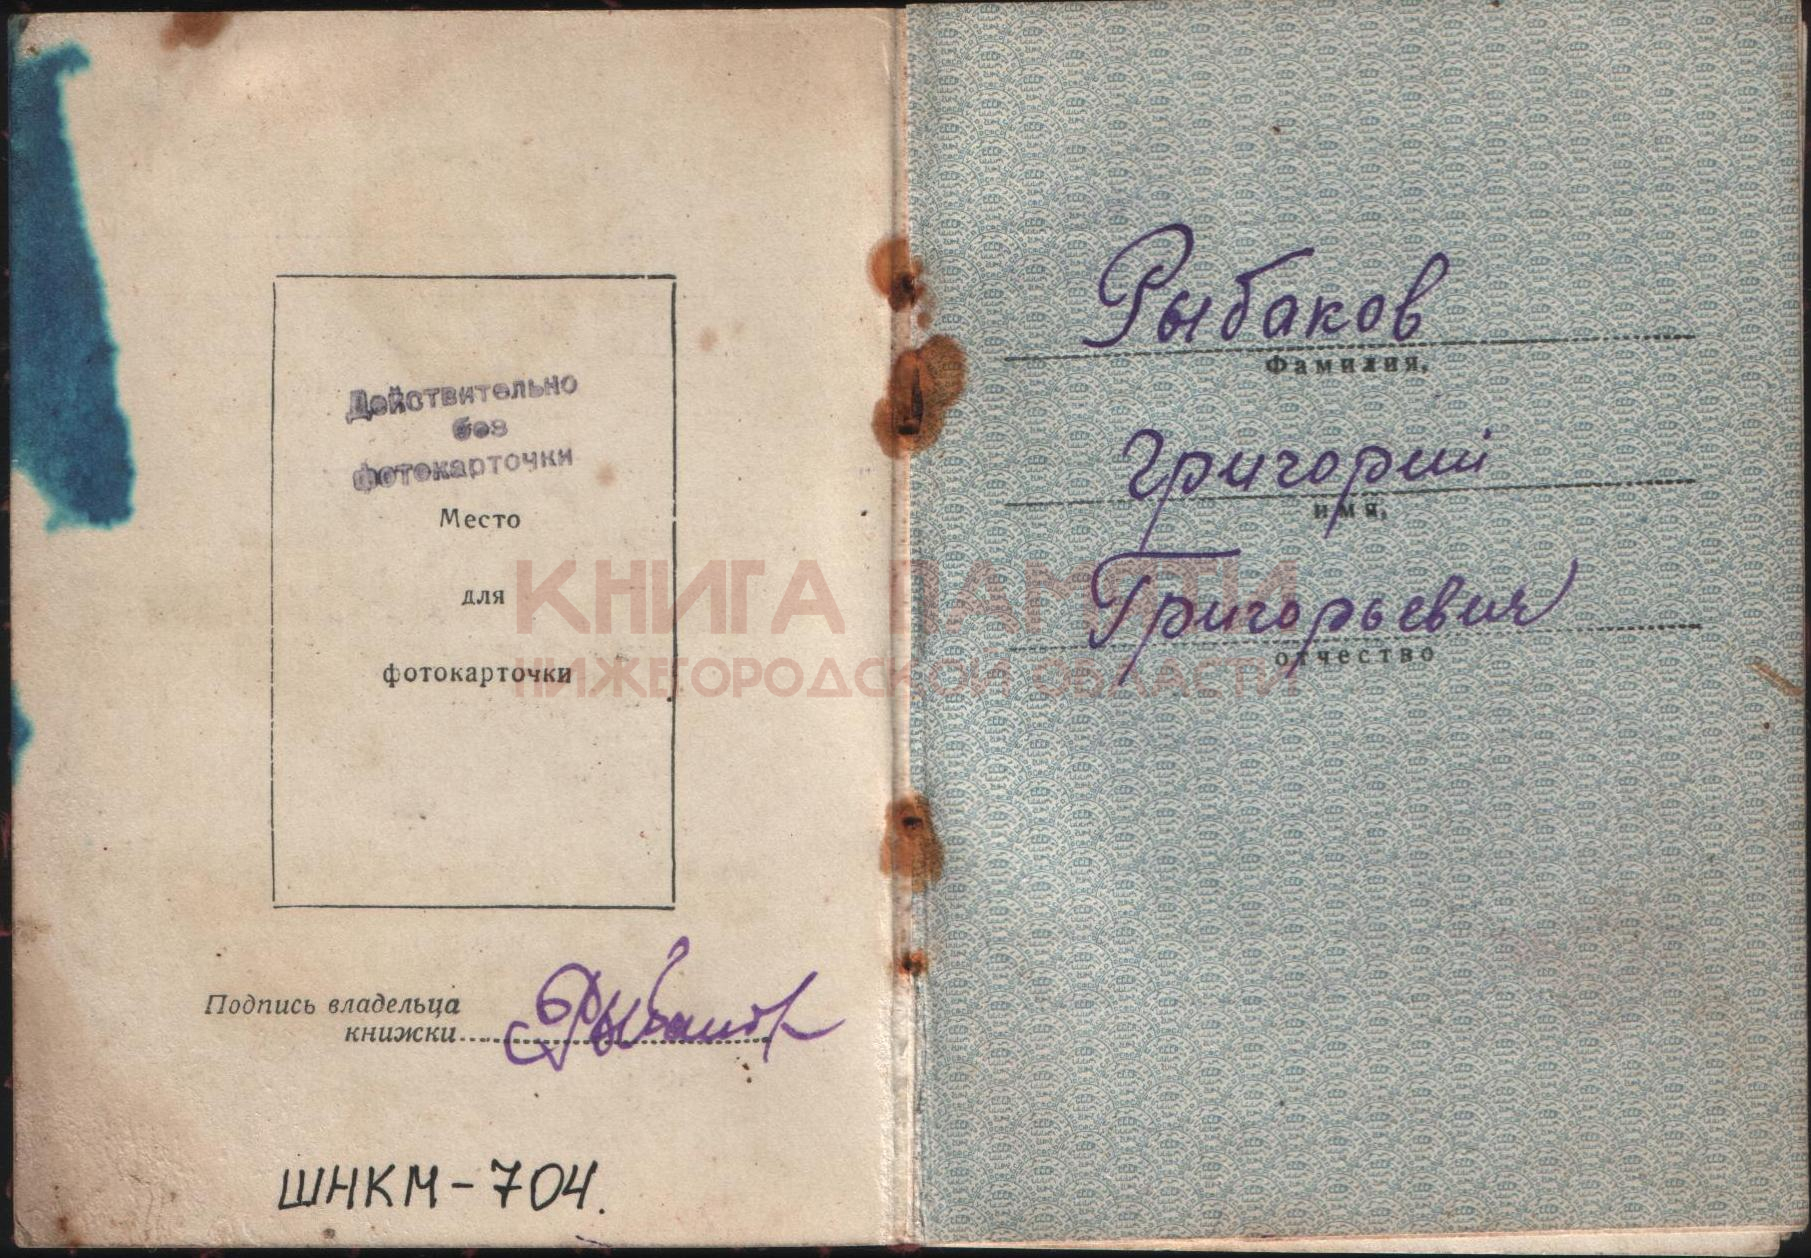 Действительно
без
фотокарточки
Место
для
фотокарточки
Подпись владельца
книжки
Рыбаков
ШНКМ-704.
Рыбаков
Фамилия,
Григорий
имя,
Григорьевич
отчество
КНИГА ПАМЯТИ
НИЖЕГОРОДСКОЙ ОБЛАСТИ